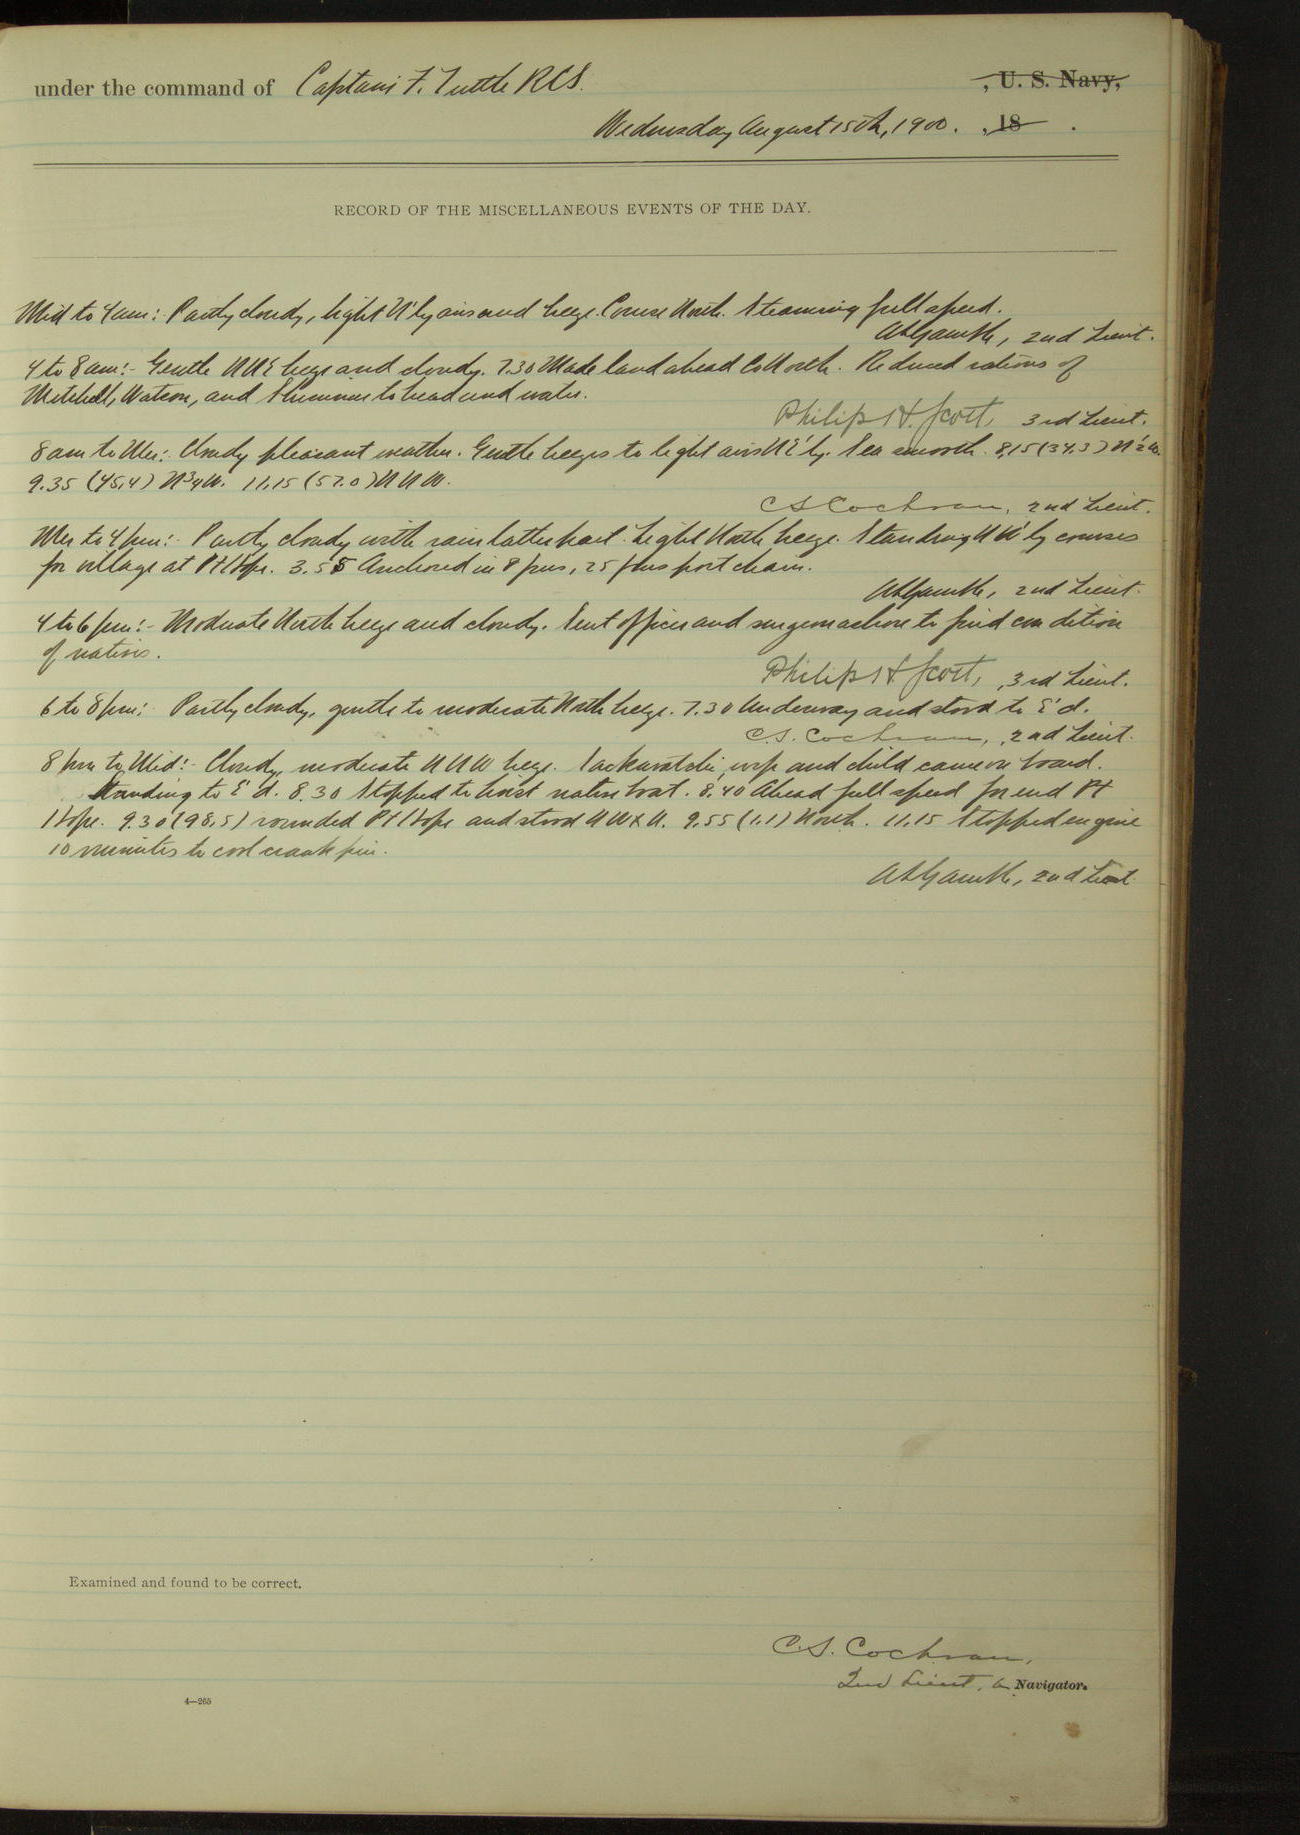 under the command of Captain F. Tuttle RCS. , U. S. Navy,
Wednesday August 15th, 1900. , 18 .
RECORD OF THE MISCELLANEOUS EVENTS OF THE DAY.
Mid to 4 am:- Partly cloudy, light N'ly airs and breeze. Course North. Steaming full speed.
A L Gamble, 2nd Lieut.
4 to 8 am:- Gentle NNE breeze and cloudy. 7.30 Made land ahead Co North. Reduced rations of
Mitchell, Watson, and to bread and water.
Philip H. Scott, 3rd Lieut.
8 am to Mer:- Cloudy pleasant weather. Gentle breezes to light airs N'E'ly. Sea smooth. 8.15 (34.3) N½W.
9.35 (45.4) N¾W. 11.15 (57.0) NNW.
C S Cochran, 2nd Lieut.
Mer to 4 pm:- Partly cloudy with rain latter part. Light North breeze. Standing N W'ly courses
for village at Pt Hope. 3.55 Anchored in 8 fms, 25 fms port chain.
A L Gamble, 2nd Lieut.
4 to 6 pm:- Moderate North breeze and cloudy. Sent officer and surgeon ashore to find condition
of natives.
Philip H. Scott, 3rd Lieut.
6 to 8 pm:- Partly cloudy, gentle to moderate North breeze. 7.30 Underway and stood to E'd.
C. S. Cochran, 2nd Lieut.
8 pm to Mid:- Cloudy, moderate NNW breeze. wife and child came on board.
Standing to E'd. 8.30 Stopped to hoist native boat. 8.40 Ahead full speed for end Pt
Hope. 9.30 (98.5) rounded Pt Hope and stood NWxN. 9.55 (1.1) North. 11.15 Stopped engine
10 minutes to cool crank pin.
A L Gamble, 2nd Lieut
Examined and found to be correct.
C. S. Cochran,
2nd Lieut, & Navigator.
4—265